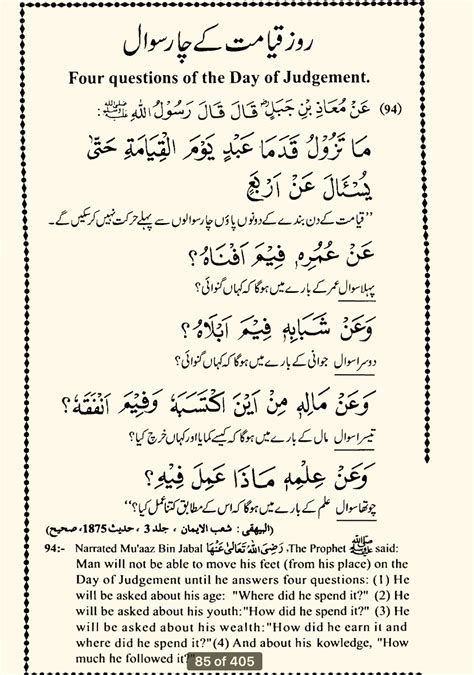 روز قیامت کے چار سوال
Four questions of the Day of Judgement.
(94) عَنْ مُعَاذِ بْنِ جَبَلٍ ؓ قَالَ قَالَ رَسُوْلُ اللّٰهِ ﷺ :
مَا تَزُوْلُ قَدَمَا عَبْدٍ يَوْمَ الْقِيَامَةِ حَتّٰى
يُسْئَالَ عَنْ اَرْبَعٍ
”قیامت کے دن بندے کے دونوں پاؤں چار سوالوں سے پہلے حرکت نہیں کر سکیں گے۔
عَنْ عُمُرِهٖ فِيْمَ اَفْنَاهُ؟
پہلا سوال عمر کے بارے میں ہوگا کہ کہاں گنوائی؟
وَعَنْ شَبَابِهٖ فِيْمَ اَبْلَاهُ؟
دوسرا سوال جوانی کے بارے میں ہوگا کہ کہاں گنوائی؟
وَعَنْ مَالِهٖ مِنْ اَيْنَ اكْتَسَبَهٗ وَفِيْمَ اَنْفَقَهٗ؟
تیسرا سوال مال کے بارے میں ہوگا کہ کیسے کمایا اور کہاں خرچ کیا؟
وَعَنْ عِلْمِهٖ مَاذَا عَمِلَ فِيْهِ؟
چوتھا سوال علم کے بارے میں ہوگا کہ اس کے مطابق کتنا عمل کیا؟“
(البیهقی : شعب الایمان ، جلد 3 ، حدیث 1875، صحیح)
94:- Narrated Mu'aaz Bin Jabal رَضِىَ اللّٰهُ تَعَالٰى عَنْهَا ,The Prophet ﷺ said:
Man will not be able to move his feet (from his place) on the
Day of Judgement until he answers four questions: (1) He
will be asked about his age: "Where did he spend it?" (2) He
will be asked about his youth:"How did he spend it?" (3) He
will be asked about his wealth:"How did he earn it and
where did he spend it?"(4) And about his kowledge, "How
much he followed it?
85 of 405